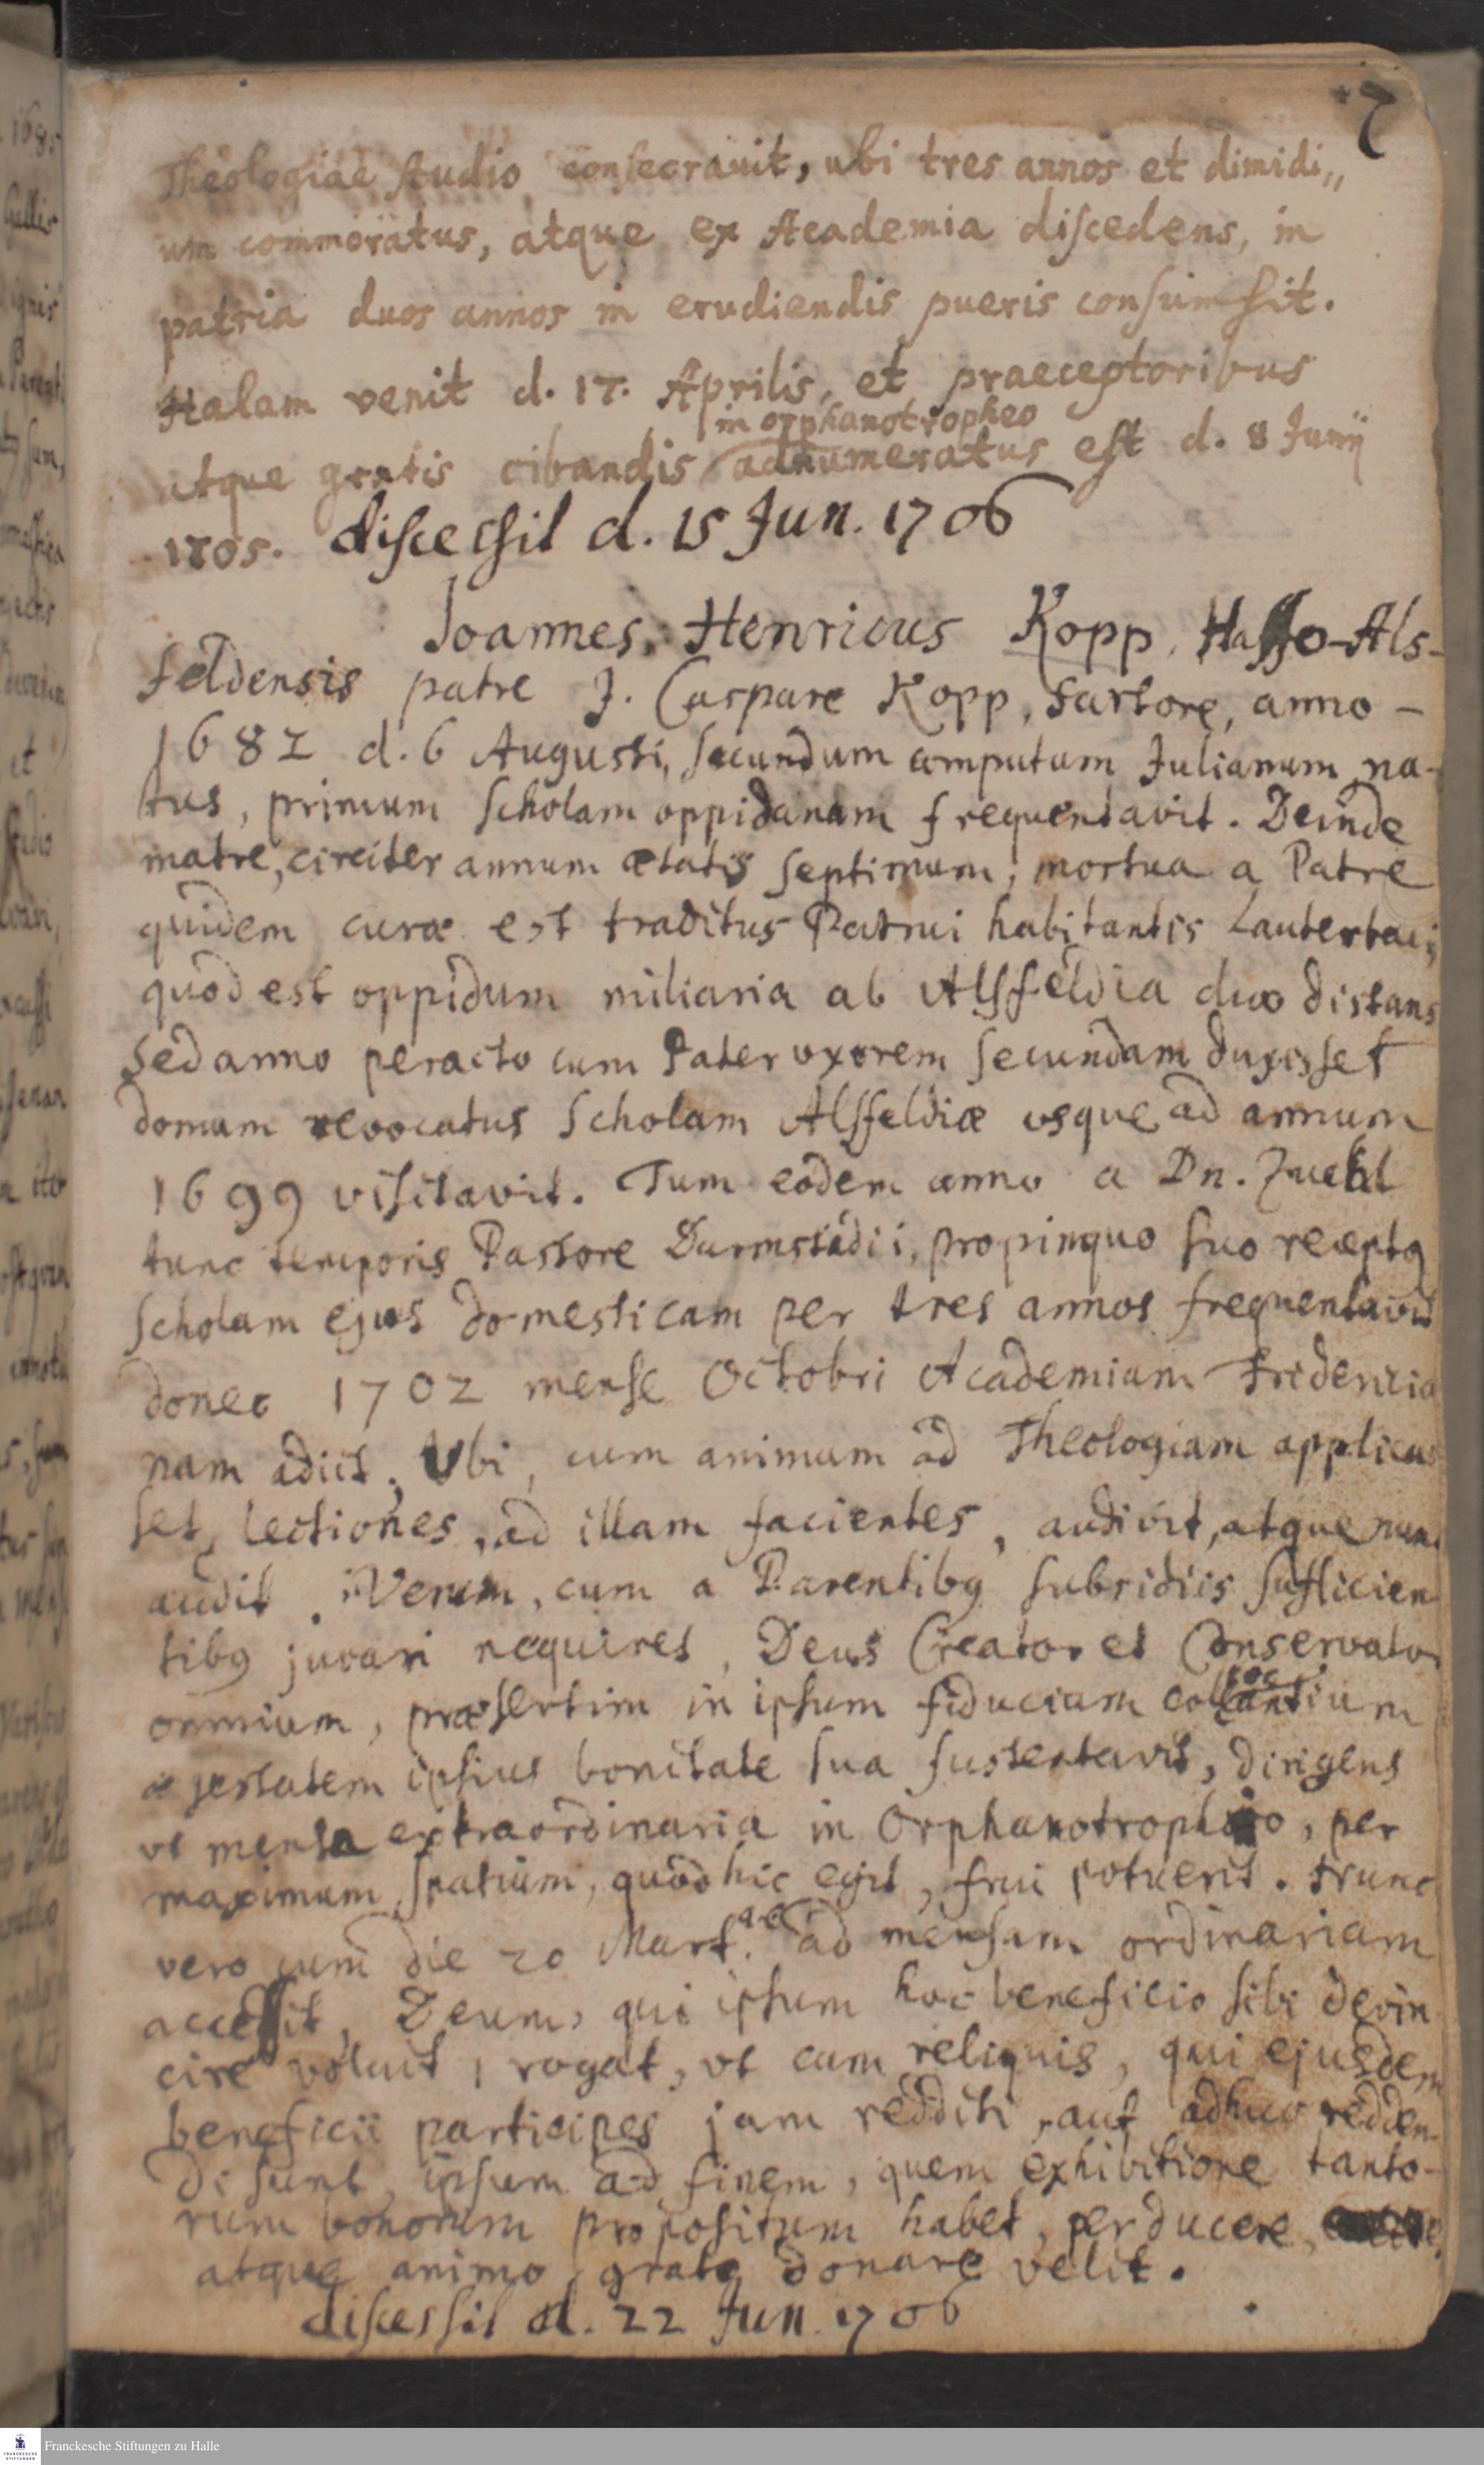 7
Theologiae studio consecravit, ubi tres annos et dimidi„
um commoratus, atque ex Academia discedens, in
patria duos annos in erudiendis pueris consumsit.
Halam venit d. 17. Aprilis, et praeceptoribus
in orphanotropheo
atque gratis cibandis adnumeratus est d. 8 Junij
1705. discessit d. 15 Jun. 1706
Joannes Henricus Kopp, Hasso-Als-
feldensis patre J. Caspare Kopp, Sartore, anno -
1682 d. 6 Augusti, secundum computum Julianum na-
tus, primum scholam oppidanam frequentavit. Deinde
matre, circiter annum ætatis septimum, mortua a Patre
quidem curæ est traditus Patrui habitantis Lauterbaci,
quod est oppidum miliaria ab Alsfeldia duo distans
Sed anno peracto cum Pater uxorem secundam duxisset
domum revocatus Scholam Alsfeldiæ usque ad annum
1699 visitavit. Tum eodem anno a Dn. Zuehl
tunc temporis Pastore Darmstadii, propinquo suo receptq
scholam ejus domesticam per tres annos frequentavit
donec 1702 mense Octobri Academiam Fridericia
nam adiit. Ubi, cum animum ad Theologiam applicas
set, lectiones, ad illam facientes, audivit, atque nunc
audit. Verum, cum a Parentibq subsidiis sufficien
tibq juvari nequiret, Deus Creator et Conservator
omnium, præsertim in ipsum fiduciam collocantium
egestatem ipsius bonitate sua sustentavit, dirigens
ut mensa extraordinaria in Orphanotrophio, per
maximum spatium, quod hic egit, frui potuerit. Nunc
vero cum die 20 Mart. a.c. ad mensam ordinariam
accessit, Deum, qui ipsum hoc beneficio sibi devin
cire voluit, rogat, ut cum reliquis, qui ejusdem
beneficii participes jam redditi, aut adhuc redden-
di sunt, ipsum ad finem, quem exhibitione tanto-
rum bonorum propositum habet, perducere,
atque animo grato donare velit.
discessit d. 22 Jun. 1706
Franckesche Stiftungen zu Halle